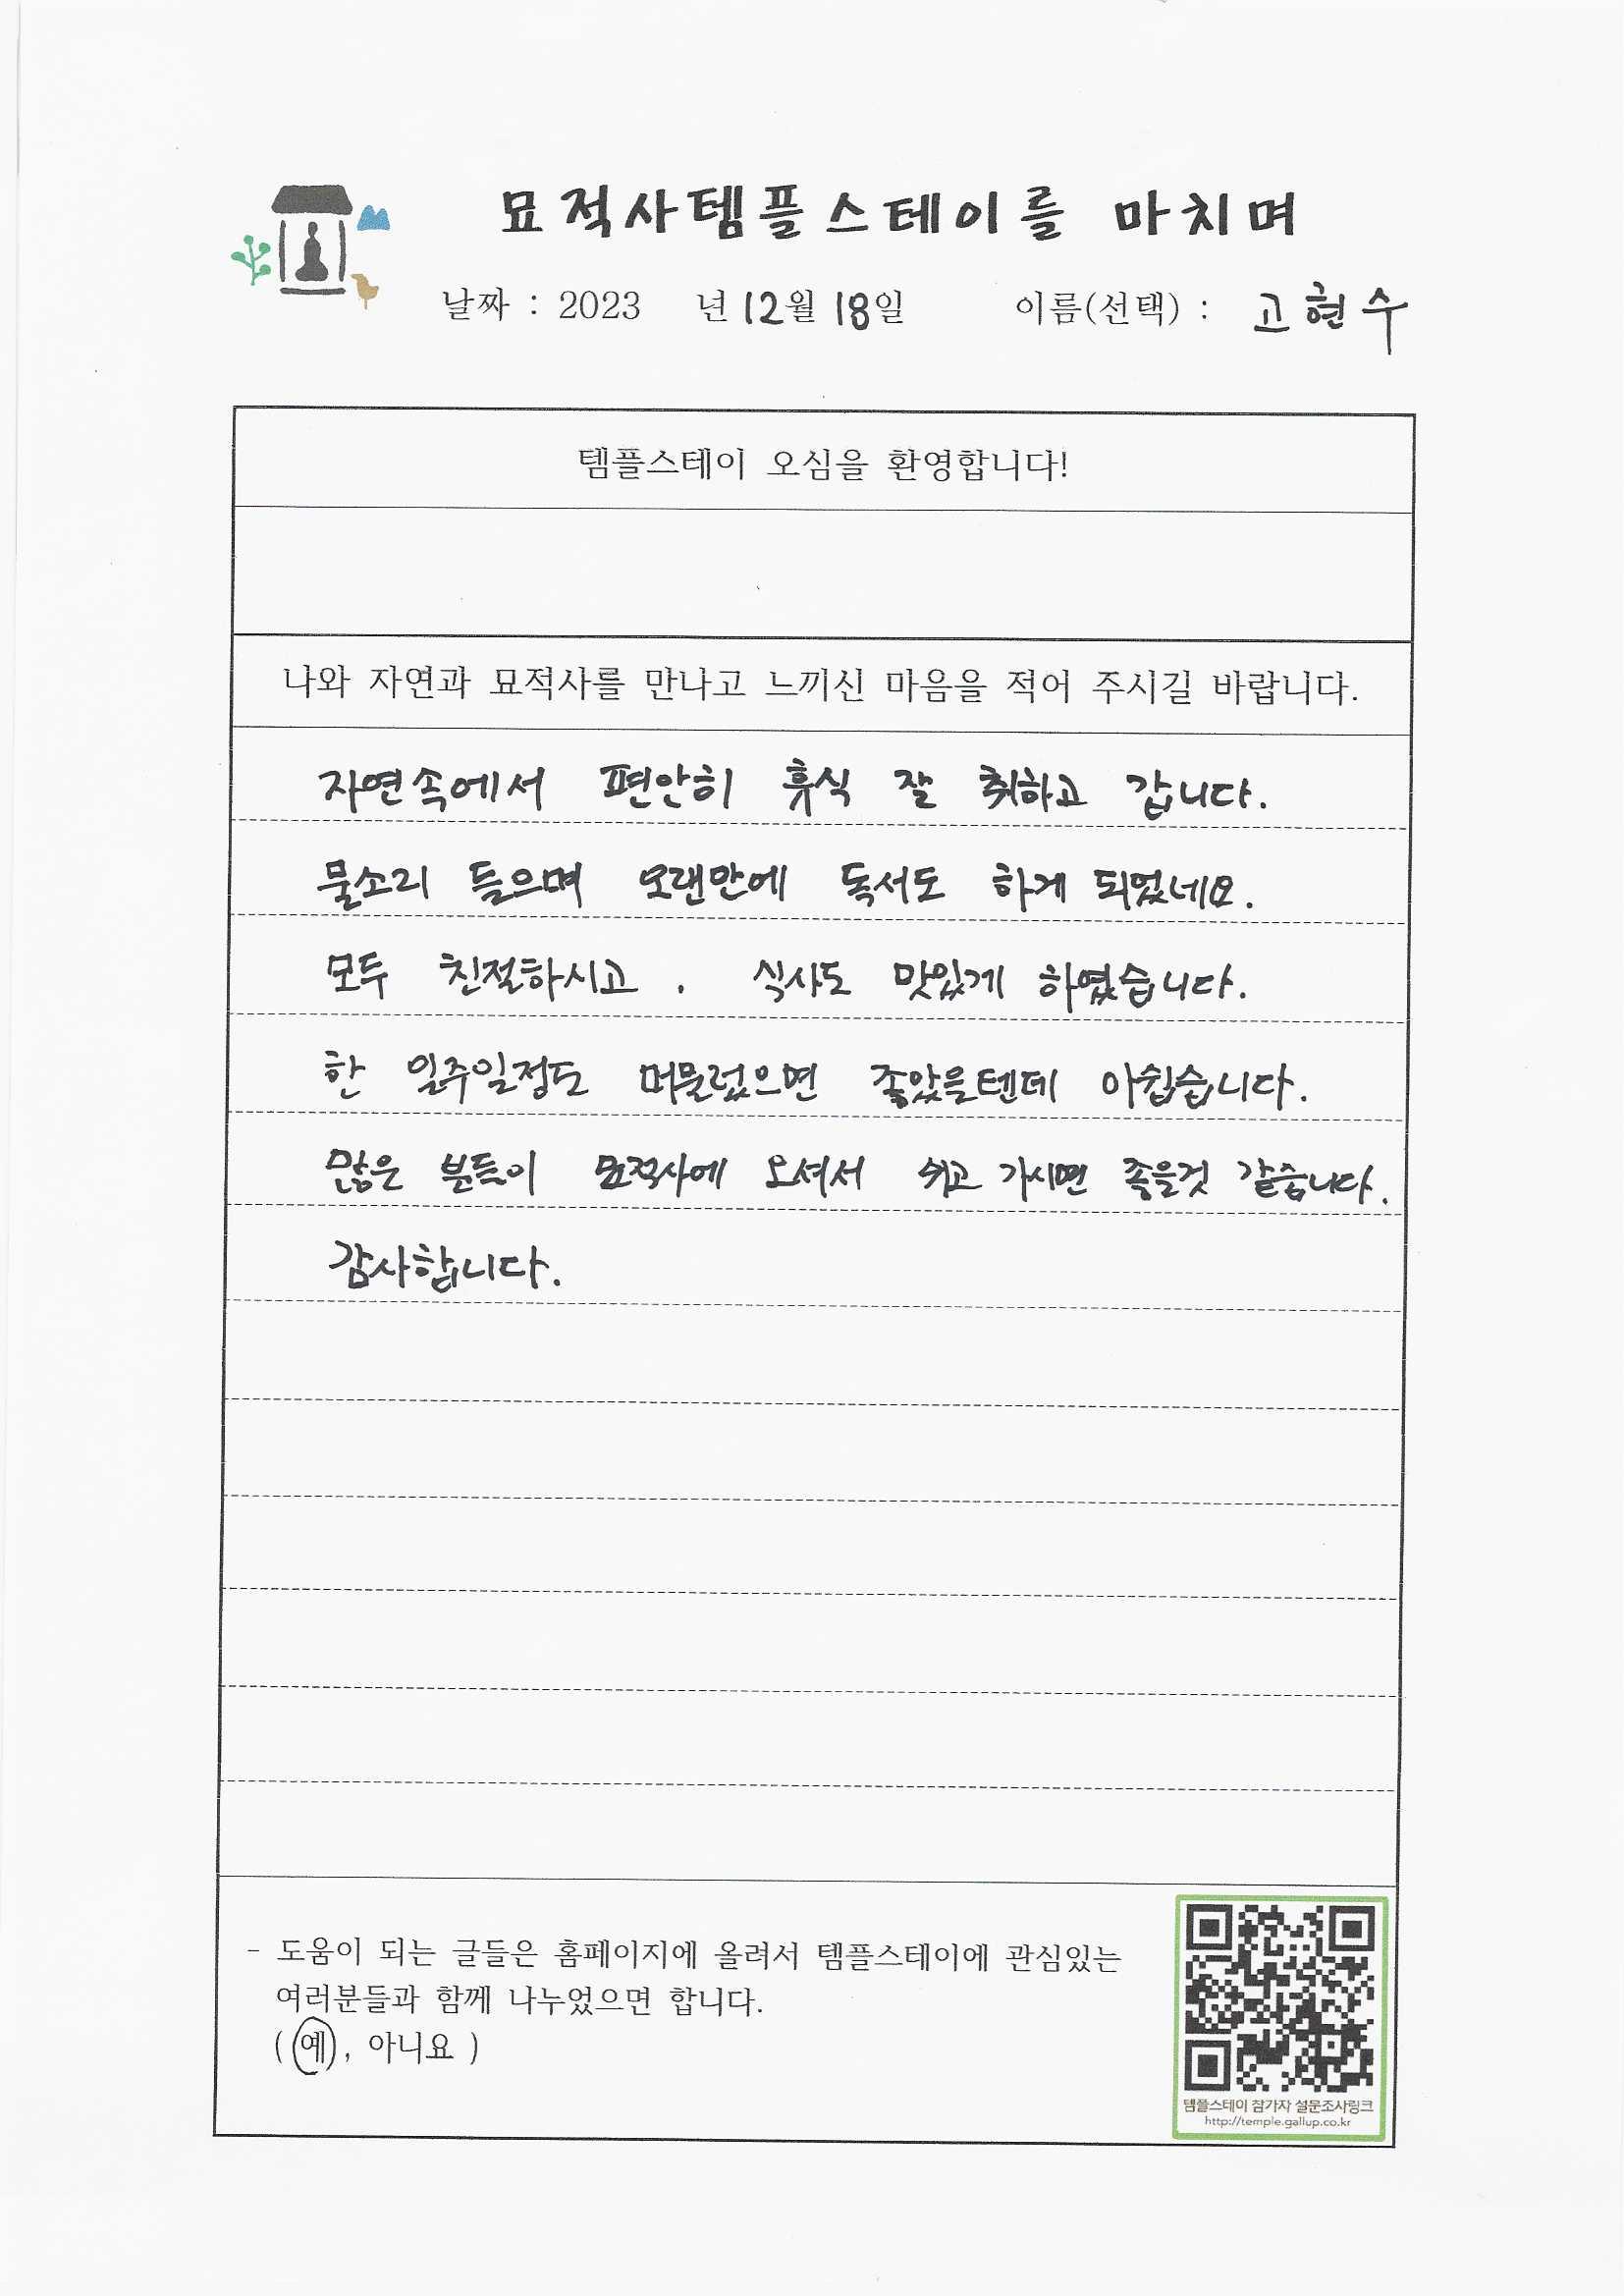 묘적사템플스테이를 마치며
날짜 : 2023 년 12월 18일 이름(선택) : 고현수
템플스테이 오심을 환영합니다!
나와 자연과 묘적사를 만나고 느끼신 마음을 적어 주시길 바랍니다.
자연속에서 편안히 휴식 잘 취하고 갑니다.
물소리 들으며 오랜만에 독서도 하게 되었네요.
모두 친절하시고 , 식사도 맛있게 하였습니다.
한 일주일정도 머물렀으면 좋았을텐데 아쉽습니다.
많은 분들이 묘적사에 오셔서 쉬고 가시면 좋을것 같습니다.
감사합니다.
- 도움이 되는 글들은 홈페이지에 올려서 템플스테이에 관심있는
여러분들과 함께 나누었으면 합니다.
( 예 , 아니요 )
템플스테이 참가자 설문조사링크
http://temple.gallup.co.kr